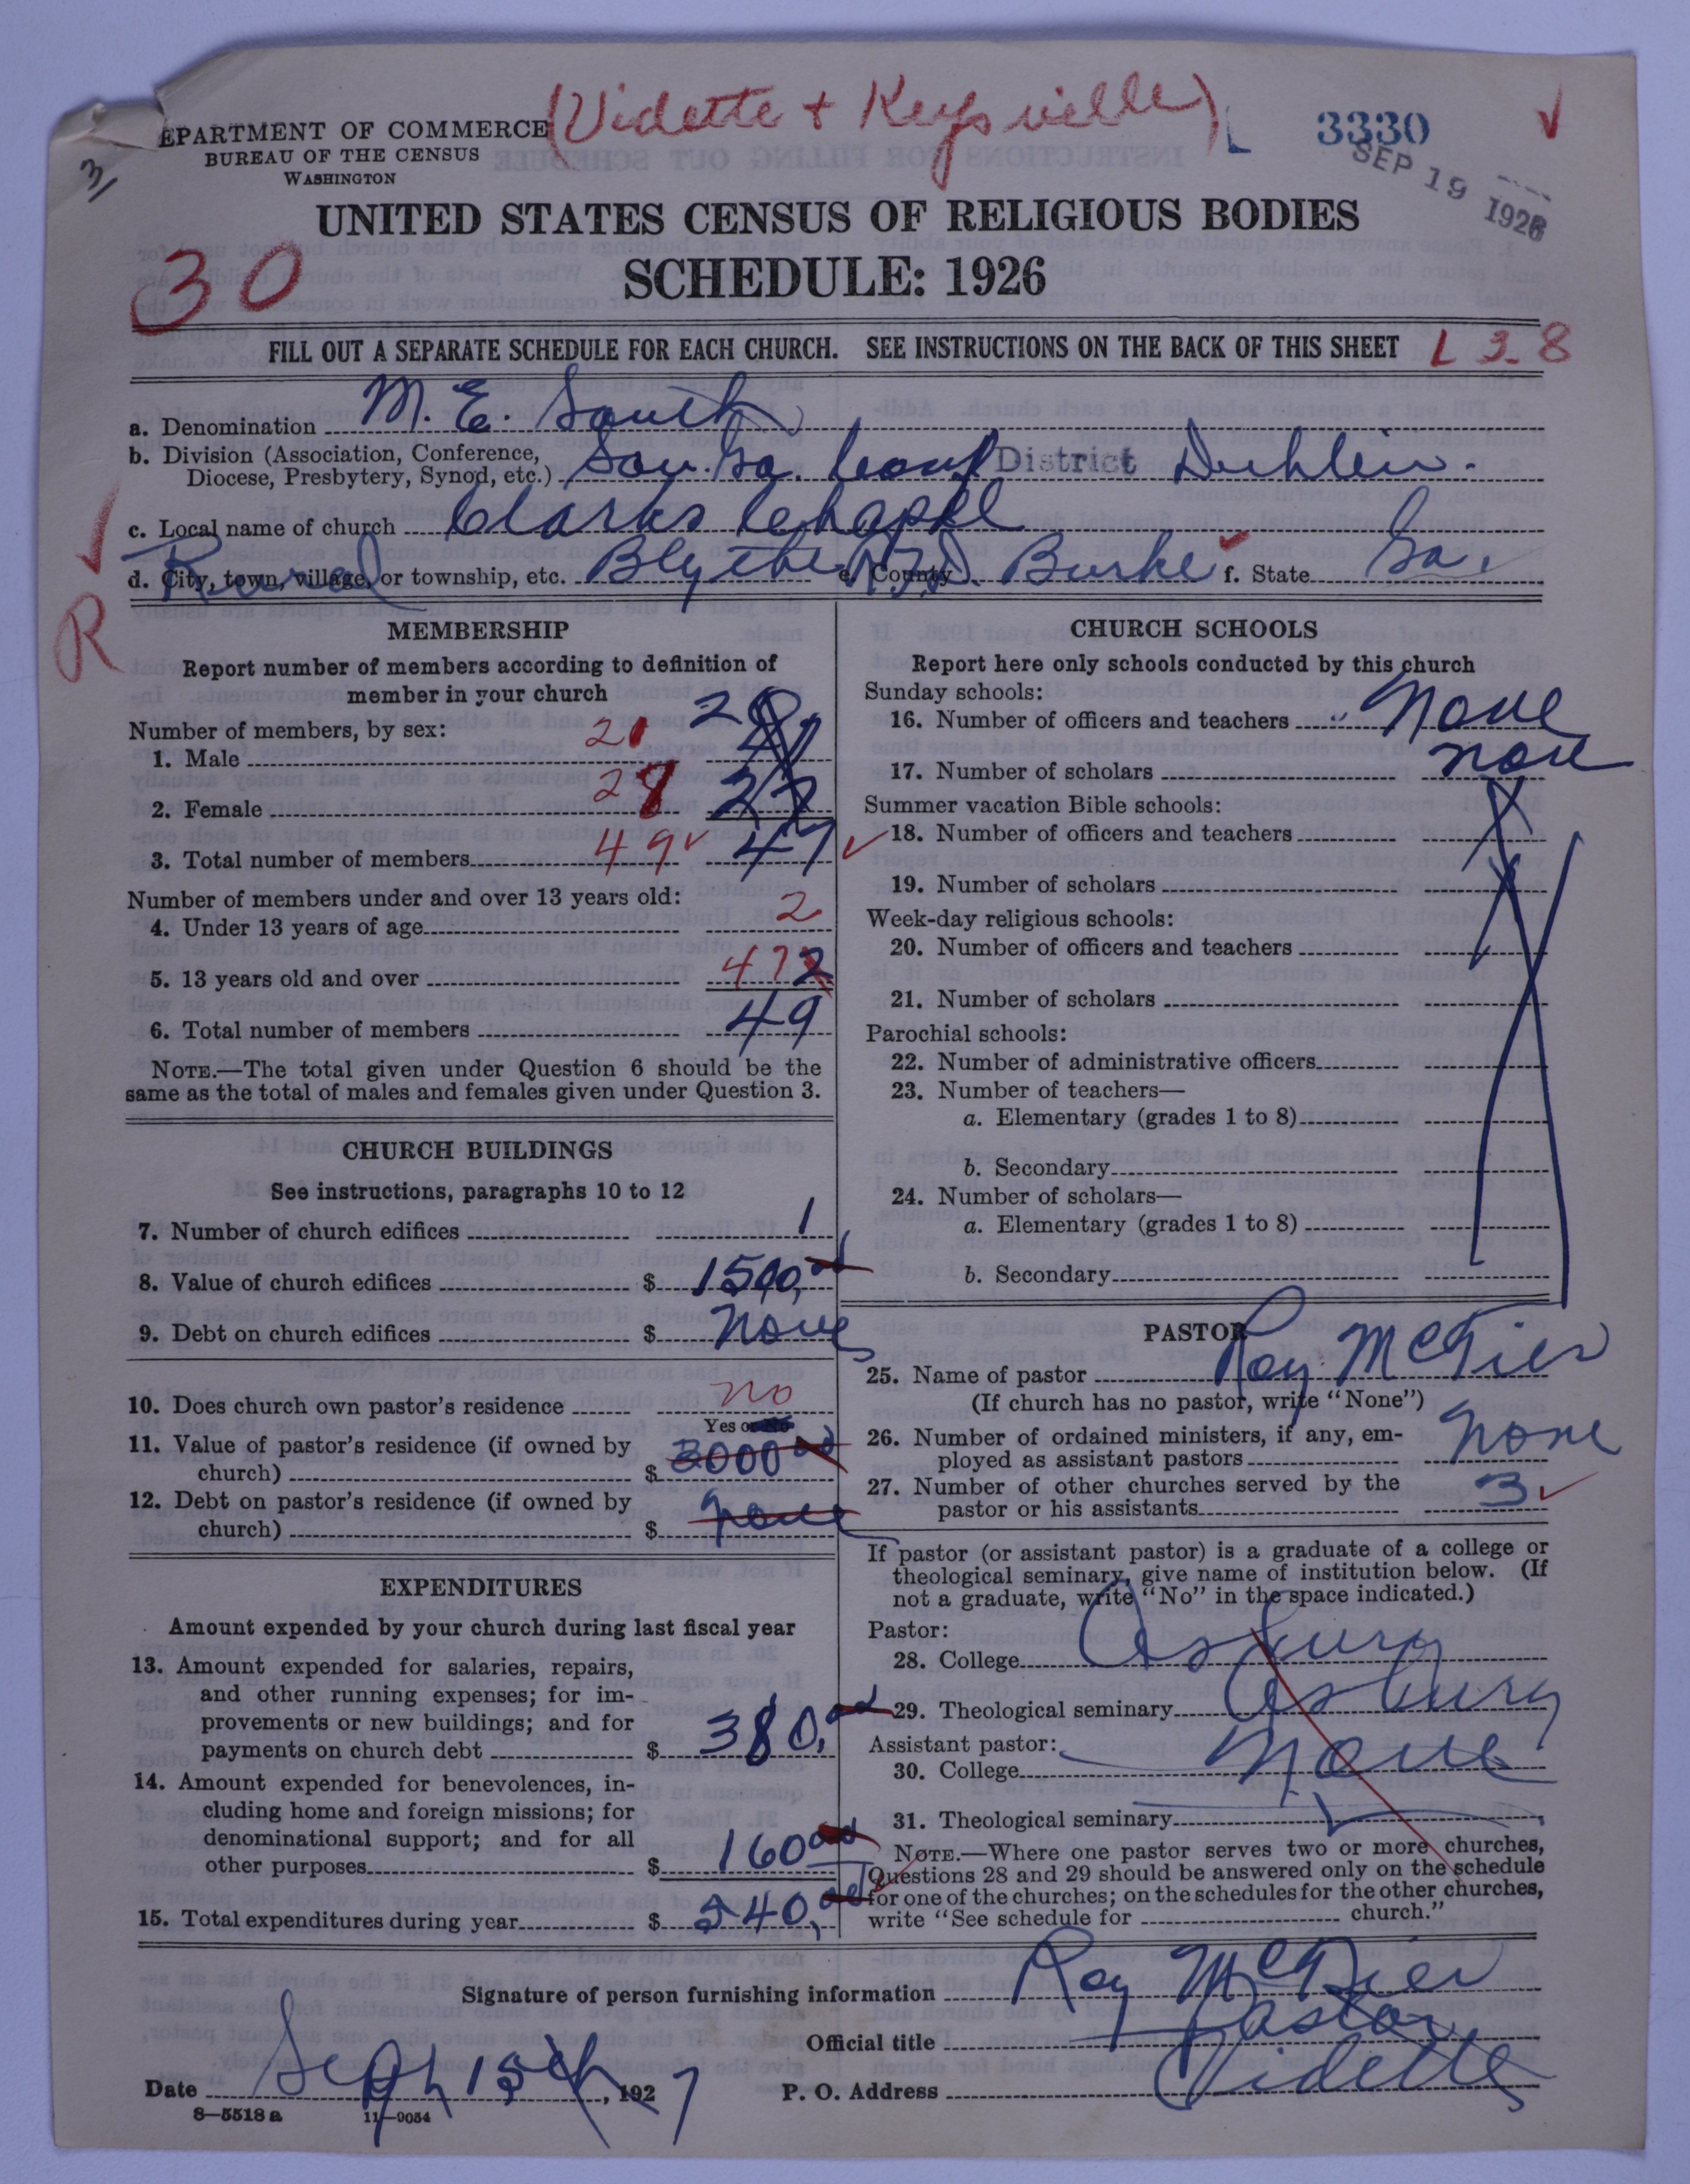 (Vidette + Keysville)
EPARTMENT OF COMMERCE
BUREAU OF THE CENSUS
WASHINGTON
L 3330
SEP 19 1926
3
UNITED STATES CENSUS OF RELIGIOUS BODIES
SCHEDULE: 1926
30
FILL OUT A SEPARATE SCHEDULE FOR EACH CHURCH. SEE INSTRUCTIONS ON THE BACK OF THIS SHEET L 3-8
a. Denomination M. E. South
b. Division (Association, Conference,
Diocese, Presbytery, Synod, etc.) Sou. Ga. Conf District Dublin.
c. Local name of church Clarks Chapel
Rural
d. City, town, village, or township, etc. Blythe RFD e. County Burke f. State Ga.
R
MEMBERSHIP
Report number of members according to definition of
member in your church
Number of members, by sex:
1. Male 21
2. Female 28 27
3. Total number of members 49 47
Number of members under and over 13 years old:
4. Under 13 years of age 2
5. 13 years old and over 47
6. Total number of members 49
NOTE.—The total given under Question 6 should be the
same as the total of males and females given under Question 3.
CHURCH BUILDINGS
See instructions, paragraphs 10 to 12
7. Number of church edifices 1
8. Value of church edifices $ 1500,00
9. Debt on church edifices $ None
10. Does church own pastor's residence no
Yes or No
11. Value of pastor's residence (if owned by
church) $ 3000 00
12. Debt on pastor's residence (if owned by
church) $ None
EXPENDITURES
Amount expended by your church during last fiscal year
13. Amount expended for salaries, repairs,
and other running expenses; for im-
provements or new buildings; and for
payments on church debt $ 380,00
14. Amount expended for benevolences, in-
cluding home and foreign missions; for
denominational support; and for all
other purposes $ 160 00
15. Total expenditures during year $ 540,00
CHURCH SCHOOLS
Report here only schools conducted by this church
Sunday schools:
16. Number of officers and teachers None
17. Number of scholars none
Summer vacation Bible schools:
18. Number of officers and teachers
19. Number of scholars
Week-day religious schools:
20. Number of officers and teachers
21. Number of scholars
Parochial schools:
22. Number of administrative officers
23. Number of teachers—
a. Elementary (grades 1 to 8)
b. Secondary
24. Number of scholars—
a. Elementary (grades 1 to 8)
b. Secondary
PASTOR
25. Name of pastor Roy McTier
(If church has no pastor, write "None")
26. Number of ordained ministers, if any, em-
ployed as assistant pastors None
27. Number of other churches served by the
pastor or his assistants 3
If pastor (or assistant pastor) is a graduate of a college or
theological seminary, give name of institution below. (If
not a graduate, write "No" in the space indicated.)
Pastor:
28. College Asbury
29. Theological seminary Asbury
Assistant pastor:
30. College None
31. Theological seminary
NOTE.—Where one pastor serves two or more churches,
Questions 28 and 29 should be answered only on the schedule
for one of the churches; on the schedules for the other churches,
write "See schedule for church."
Signature of person furnishing information Roy McTier
Official title Pastor
Date Sept 15th, 1927 P. O. Address Vidette
8—5518 a 11—9054